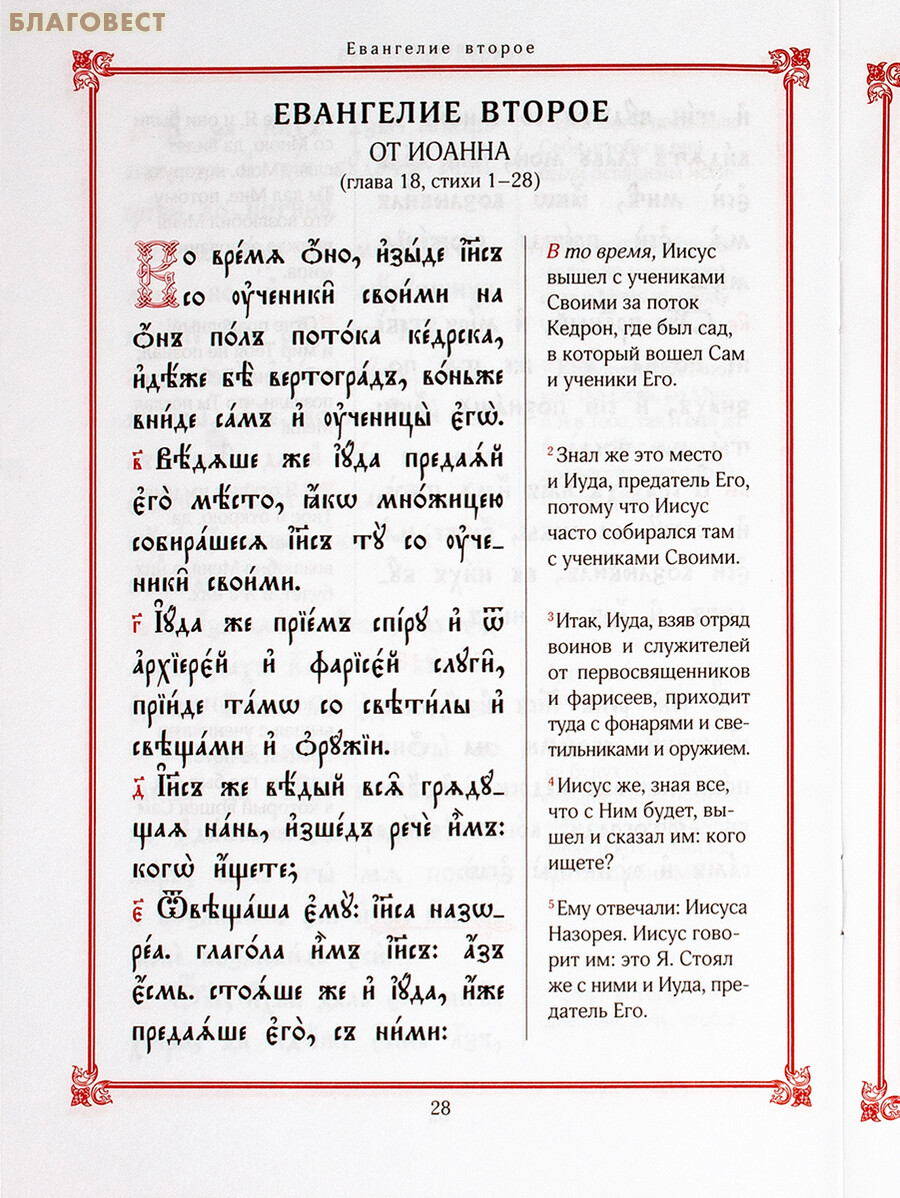 БЛАГОВЕСТ
Евангелие второе
ЕВАНГЕЛИЕ ВТОРОЕ
ОТ ИОАННА
(глава 18, стихи 1–28)
Во вре́мѧ ѻ҆́но, и҆зы́де і҆и҃съ
со ᲂу҆ченики̑ свои́ми на
ѻ҆́нъ по́лъ пото́ка ке́дрска,
и҆дѣ́же бѣ̀ вертогра́дъ, во́ньже
вни́де са́мъ и҆ ᲂу҆чн҃цы̀ є҆гѡ̀.
в҃ Вѣ́дѧше же і҆ꙋ́да предаѧ́й
є҆го̀ мѣ́сто, ꙗ҆́кѡ мно́жицею
собира́шесѧ і҆и҃съ тꙋ̀ со ᲂу҆че-
ники̑ свои́ми.
г҃ І҆ꙋ́да же прїе́мъ спі́рꙋ и҆ ѿ
а҆рхїере́й и҆ фарїсе́й слꙋги̑,
прїи́де та́мѡ со свѣти́лы и҆
свѣща́ми и҆ ѻ҆рꙋ́жїи.
д҃ І҆и҃съ же вѣ́дый всѧ̑ грѧдꙋ́-
щаѧ на́нь, и҆зше́дъ речѐ и҆̀мъ:
когѡ̀ и҆́щете;
є҃ Ѿвѣща́ша є҆мꙋ̀: і҆и҃са назѡ-
ре́а. глаго́ла и҆̀мъ і҆и҃съ: а҆́зъ
є҆́смь. стоѧ́ше же и҆ і҆ꙋ́да, и҆́же
предаѧ́ше є҆го̀, съ ни́ми:
В то время, Иисус
вышел с учениками
Своими за поток
Кедрон, где был сад,
в который вошел Сам
и ученики Его.
2 Знал же это место
и Иуда, предатель Его,
потому что Иисус
часто собирался там
с учениками Своими.
3 Итак, Иуда, взяв отряд
воинов и служителей
от первосвященников
и фарисеев, приходит
туда с фонарями и све-
тильниками и оружием.
4 Иисус же, зная все,
что с Ним будет, вы-
шел и сказал им: кого
ищете?
5 Ему отвечали: Иисуса
Назорея. Иисус гово-
рит им: это Я. Стоял
же с ними и Иуда, пре-
датель Его.
28